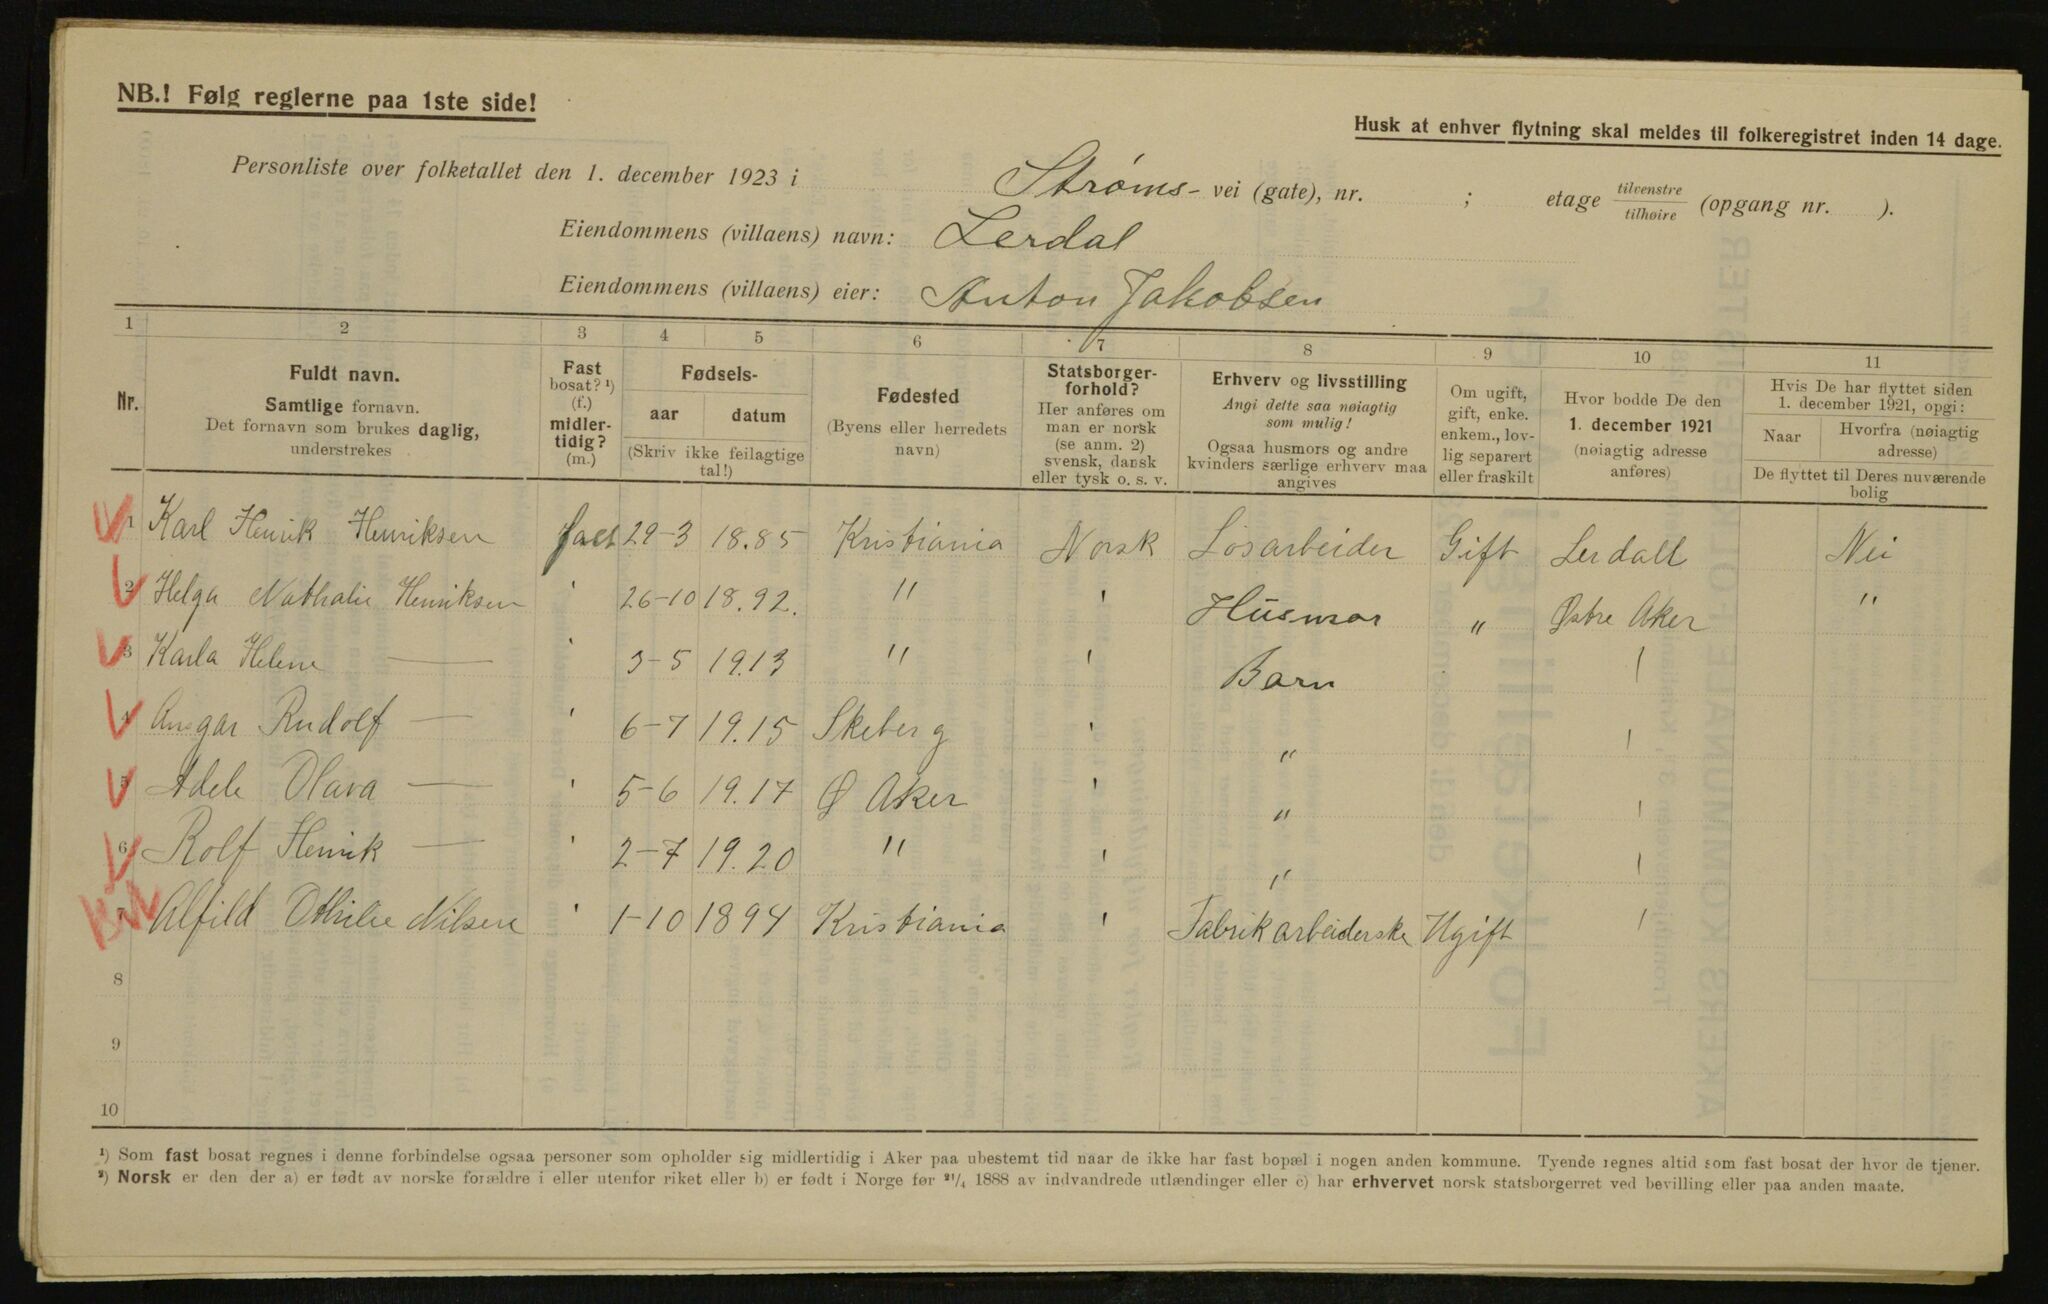 NB.! Følg reglerne paa 1ste side!
Husk at enhver flytning skal meldes til folkeregistret inden 14 dage.
Personliste over folketallet den 1. december 1923 i Strøms- vei (gate), nr. ; etage tilvenstre/tilhøire (opgang nr. ).
Eiendommens (villaens) navn: Lerdal
Eiendommens (villaens) eier: Anton Jakobsen
1 2 3 4 5 6 7 8 9 10 11
Nr.
Fuldt navn.
Samtlige fornavn.
Det fornavn som brukes daglig, understrekes
Fast bosat? ¹) (f.) midlertidig? (m.)
Fødsels-
aar datum
(Skriv ikke feilagtige tal!)
Fødested
(Byens eller herredets navn)
Statsborgerforhold?
Her anføres om man er norsk (se anm. 2) svensk, dansk eller tysk o. s. v.
Erhverv og livsstilling
Angi dette saa nøiagtig som mulig!
Ogsaa husmors og andre kvinders særlige erhverv maa angives
Om ugift, gift, enke. enkem., lovlig separert eller fraskilt
Hvor bodde De den 1. december 1921 (nøiagtig adresse anføres)
Hvis De har flyttet siden 1. december 1921, opgi:
Naar Hvorfra (nøiagtig adresse)
De flyttet til Deres nuværende bolig
1 Karl Henrik Henriksen fast 29-3 18.85 Kristiania Norsk Løsarbeider Gift Lerdall Nei
2 Helga Nathalie Henriksen ' 26-10 18.92. " ' Husmor " Østre Aker "
3 Karla Helene — ' 3-5 19.13 " ' Barn '
4 Ansgar Rudolf — ' 6-7 19.15 Skeberg ' " '
5 Adele Olava — ' 5-6 19.17 Ø Aker ' " '
6 Rolf Henrik — ' 2-7 19.20 " ' " '
7 Alfild Othilie Nilsen ' 1-10 1894 Kristiania ' Fabrikarbeiderske Ugift '
8
9
10
¹) Som fast bosat regnes i denne forbindelse ogsaa personer som opholder sig midlertidig i Aker paa ubestemt tid naar de ikke har fast bopæl i nogen anden kommune. Tyende regnes altid som fast bosat der hvor de tjener.
²) Norsk er den der a) er født av norske forældre i eller utenfor riket eller b) er født i Norge før ²¹/₄ 1888 av indvandrede utlændinger eller c) har erhvervet norsk statsborgerret ved bevilling eller paa anden maate.